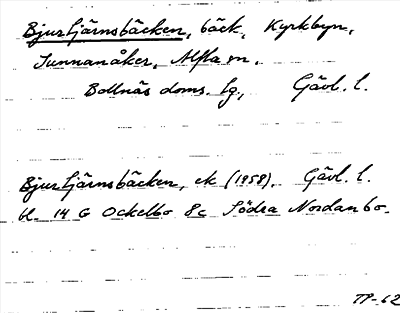 Bjurtjärnsbäcken, bäck, Kyrkbyn,
Sunnanåker, Alfta sn.
Bollnäs doms. lg, Gävl. l.
Bjurtjärnsbäcken, ek (1958). Gävl. l.
bl. 14 G Ockelbo 8c Södra Nordanbo.
TP-62